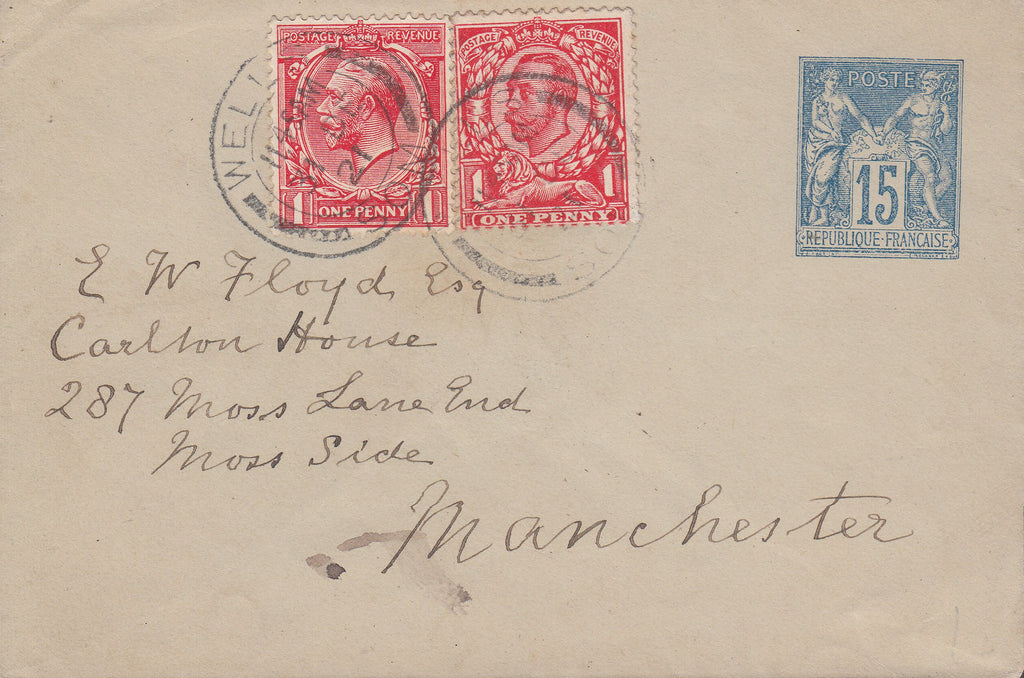 POSTAGE REVENUE
1 ONE PENNY 1
POSTAGE REVENUE
1 1
ONE PENNY
POSTE
15
RÉPUBLIQUE FRANÇAISE
21
E W Floyd, Esq
Carlton House
287 Moss Lane End
Moss Side
Manchester